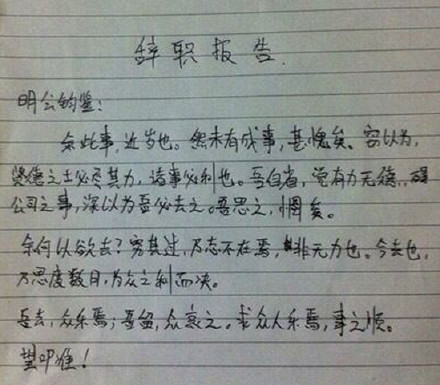 辞职报告.
明公钧鉴:
余此事,近岁也。然未有成事,甚愧矣。窃以为,
贤德之士必尽其力,诸事必利也。吾自省,觉有力无德,碍
公司之事,深以为吾必去之。吾思之,惘矣。
余何以欲去?究其过,乃志不在焉,非无力也。今去也,
乃思度数月,为众之利而决。
吾去,众乐焉;吾留,众哀之。求众人乐焉,事之顺。
望叩准!